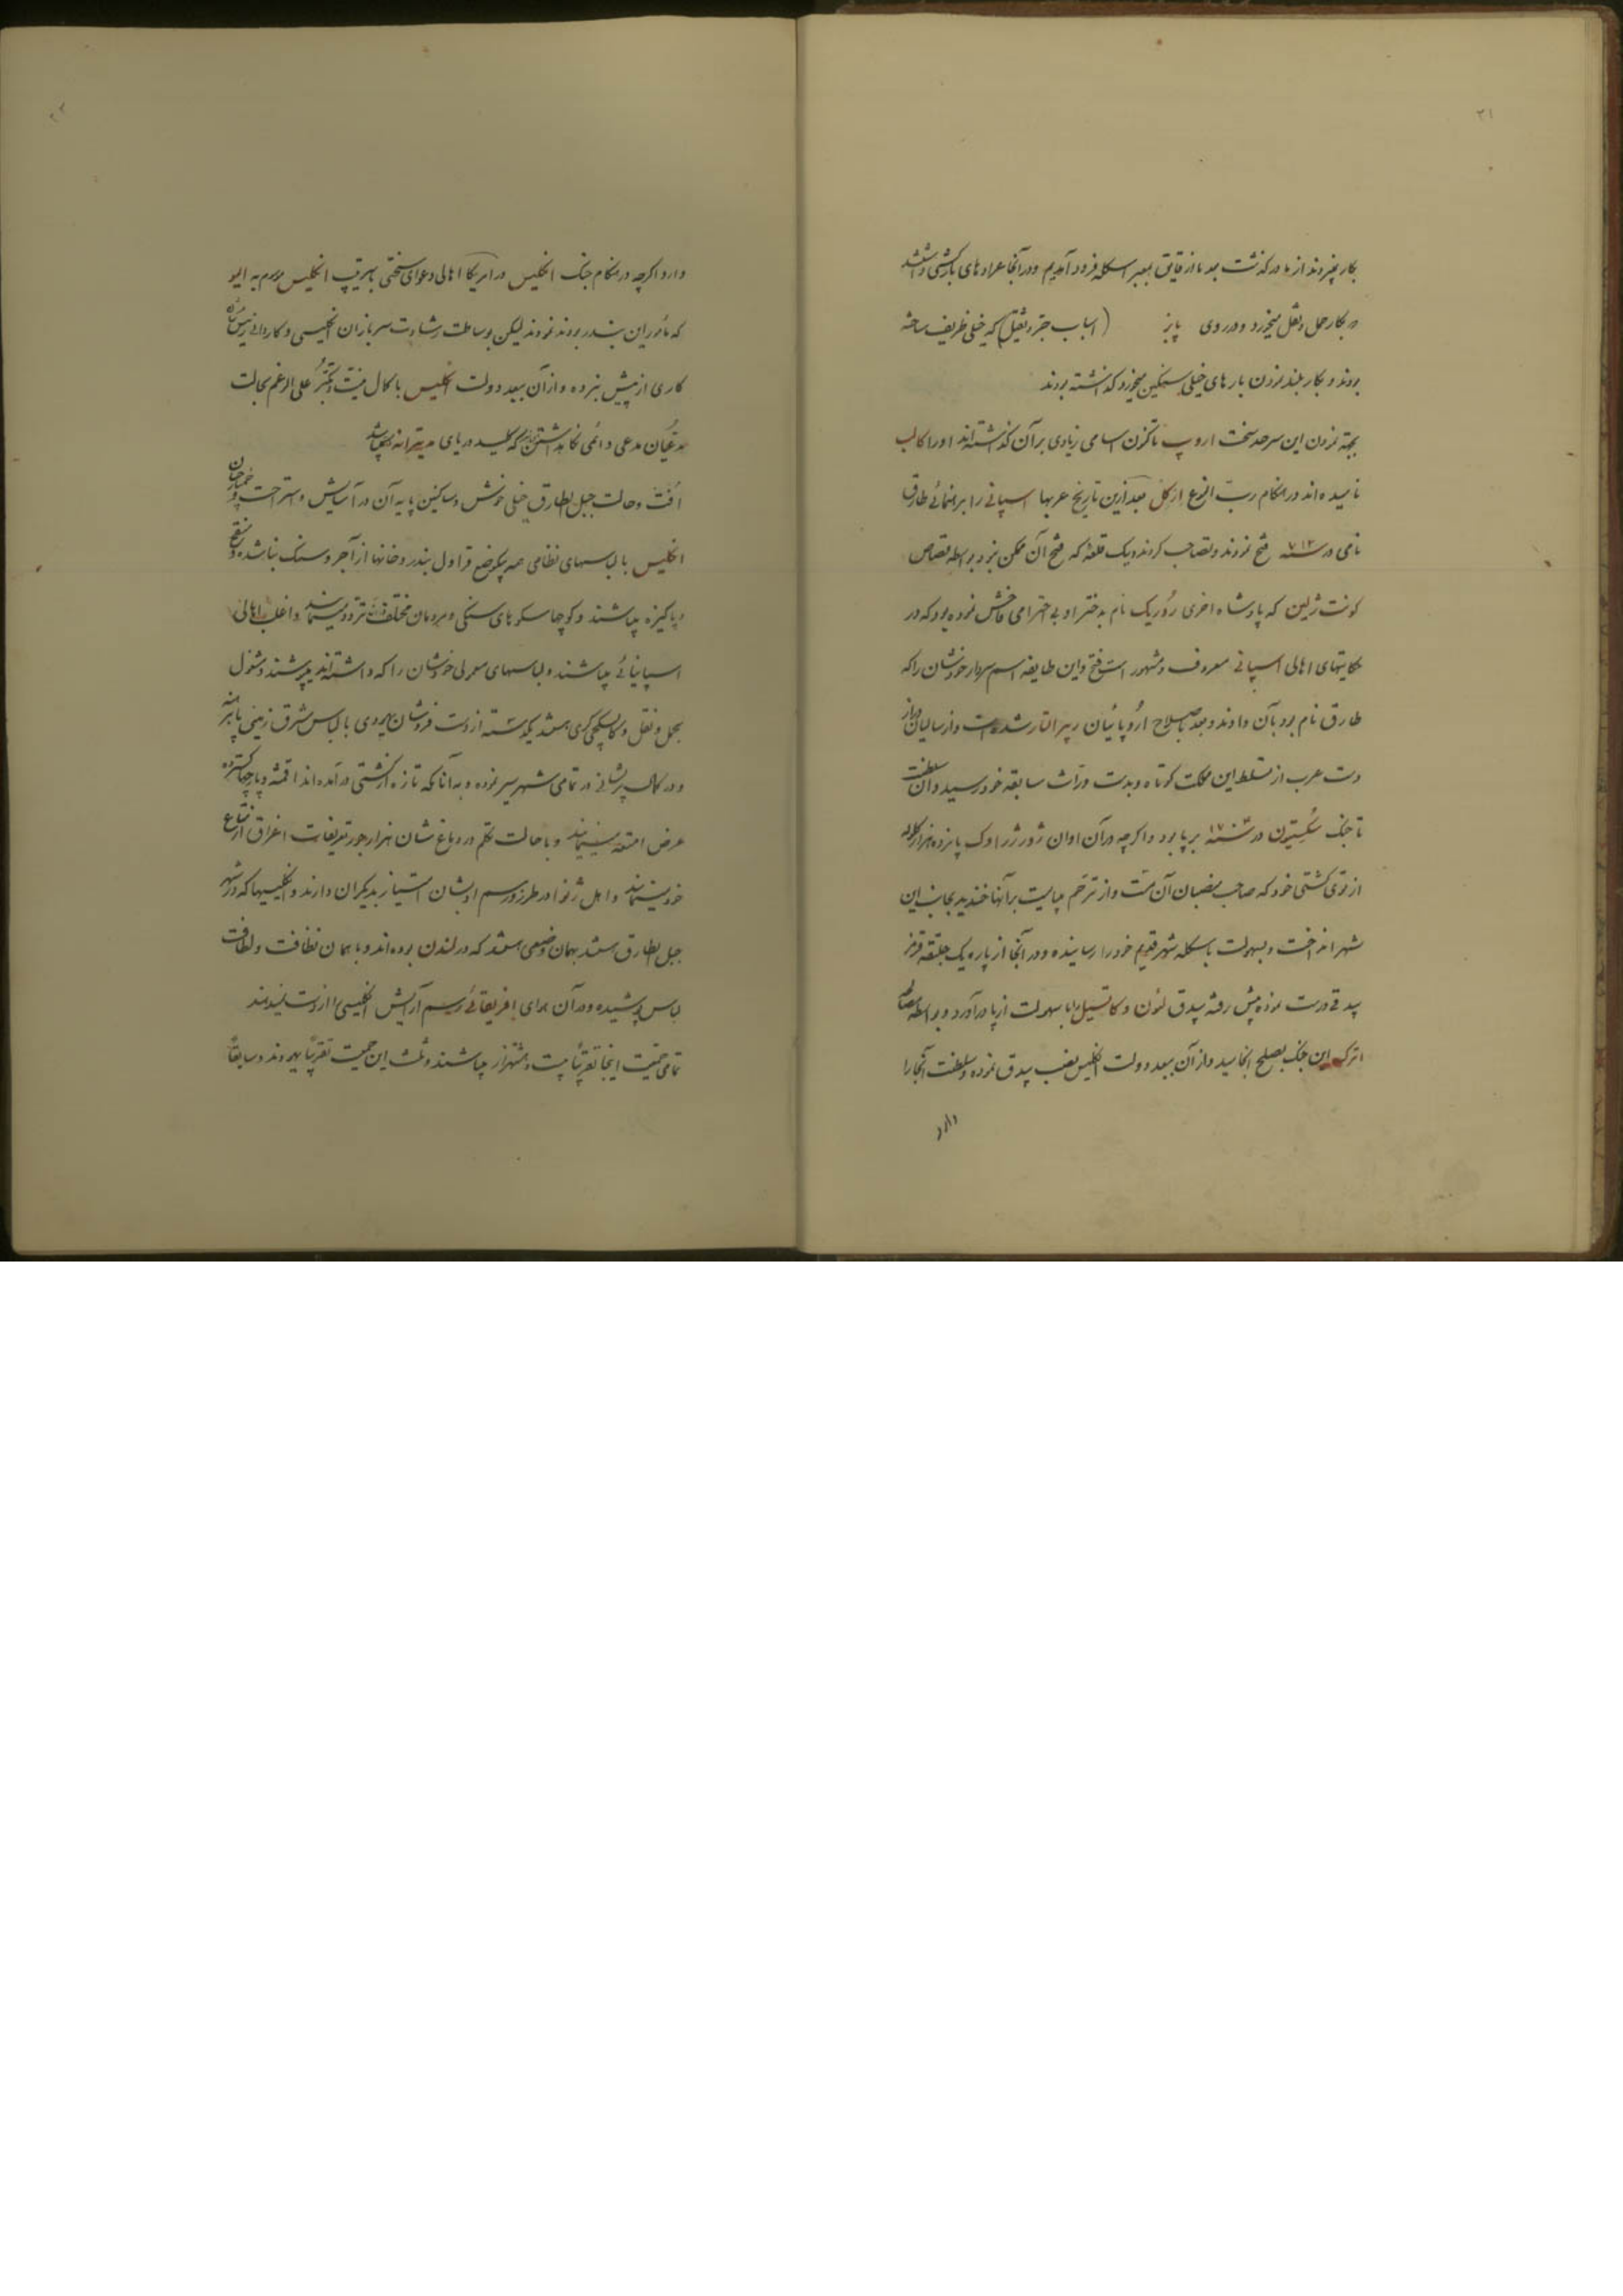 ۲۱
بکار میبردند از ما درگذشت بعد ما از قایق بمعبر اسکله فرود آمدیم و در آنجا عراده‌های بارکشی داشتند
که بکار حمل و نقل میخورد و در روی پایز (اسباب جر و ثقیل) که خیلی ظریف ساخته
بودند و بکار بلند نمودن بارهای خیلی سنگین میخورد گذاشته بودند
بجهة نمودن این سرحد سخت اروپ تاکنون اسامی زیادی بر آن گذاشته‌اند اورا کالپ
نامیده‌اند در هنگام رب النوع ارکل بعد ازین تاریخ عربها اسپانی را برهنمائی طارق
نامی در سنه ۷۱۲ فتح نمودند و تصاحب کردند و یک قلعه که فتح آن ممکن نبود بواسطه تقاص
کونت ژلین که پادشاه اخری رودریک نام بدختر او بی احترامی فاحش نموده بود که در
حکایتهای اهالی اسپانی معروف و مشهور است فتح و این طایفه اسم سردار خودشان را که
طارق نام بود بآن دادند و بعد باصطلاح اروپائیان ژیبرالتار شده است و از سالیان دراز
دست عرب از تسلط این مملکت کوتاه و بدست وراث سابقه خود رسید و آن سلطنت
تا جنگ سکسیون در سنه ۱۷۰۰ برپا بود و اگرچه در آن اوان ژورژ روک پانزده هزار گلوله
از توی کشتی خود که صاحب منصبان آن مست و از ترحم میبایست بر آنها خندید بجانب این
شهر انداخت و بسهولت باسکله شهر قدیم خود را رسانیده و در آنجا از پاره یک جلیقه قرمز
بیدقی درست نموده پیش رفته بیدق لئون و کاستیل را با سهولت از پا درآورد و بواسطه مصالحه
اترک این جنگ بصلح انجامید و از آن ببعد دولت انگلیس نصب بیدق نموده و سلطنت آنجا را
دارد
۲۲
دارد اگرچه در هنگام جنگ انگلیس در امریکا اهالی دعوای سختی بسرتیپ انگلیس موسوم به الیو
که مأمور این بندر بودند نمودند لیکن بوساطت رشادت سربازان انگلیسی و کاردانی رئیس‌شان
کاری از پیش نبرده و از آن ببعد دولت انگلیس با کمال منیت و تکبر علی الرغم بحالت
مدعیان مدعی دائمی نگاهداشتن که کلید دریای مدیترانه میباشد
افت و حالت جبل الطارق خیلی خوش و ساکنین پایه آن در آسایش و استراحت و
انگلیس با لباسهای نظامی همه یکوضع قراول بندر و خانها از آجر و سنگ بنا شده و منقح
و پاکیزه میباشند و کوچها سکوهای سنگی و مردمان مختلف تردد مینمایند و اغلب اهالی
اسپانیائی میباشند و لباسهای معمولی خودشان را که داشته‌اند میپوشند و مشغول
بحمل و نقل و کالسکچی گری هستند یکدسته از دست فروشان یهودی با لباس مشرق زمینی پا برهنه
و در کمال پریشانی در تمامی شهر سیر نموده و به آنانکه تازه از کشتی درآمده‌اند اقمشه و پارچها گسترده
عرض امتعه مینمایند و با حالت تکلم در دماغ شان هزار جور تعریفات اغراق از متاع
خود مینمایند و اهل ژنوا در طرز و رسم ادبشان امتیاز بدیگران دارند و انگلیسیها که در شهر
جبل الطارق هستند بهمان وضعی هستند که در لندن بوده‌اند و با همان نظافت و لطافت
لباس پوشیده و در آن هوای افریقائی رسم آرایش انگلیسی را از دست نمیدهند
تمامی جمعیت اینجا تقریباً بیست و هشت هزار میباشند و ثلث این جمعیت تقریباً یهودند و سابقاً